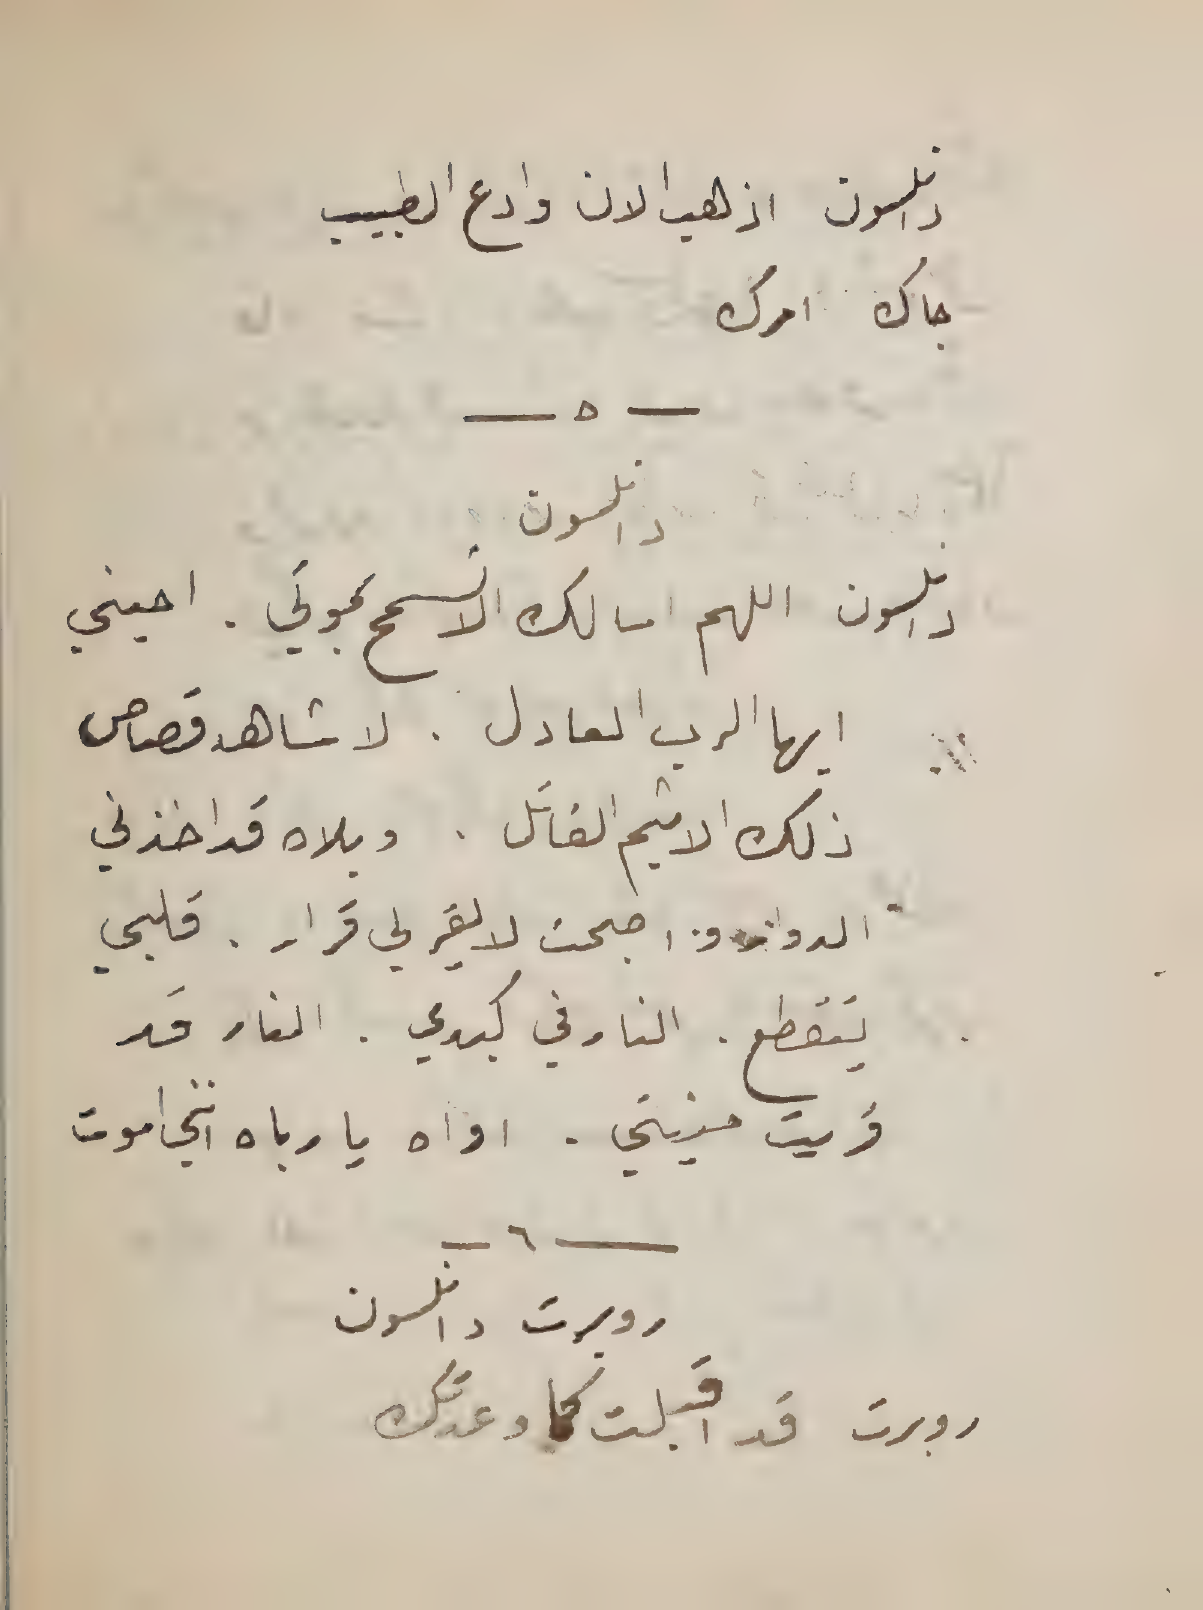 دانلسون اذهب الان وادع الطبيب
جاك امرك
— ٥ —
دانلسون
دانلسون اللهم اسالك الا تسمح بموتي . احيني
ايها الرب العادل . لاشاهد قصاص
ذلك الاثيم القاتل . ويلاه قد اخذني
الدوار و اصبحت لا يقر لي قرار . قلبي
يتقطع . النار في كبدي . النار قد
قربت منيتي . اواه يا رباه انني اموت
— ٦ —
روبرت دانلسون
روبرت قد اقبلت كما وعدتك